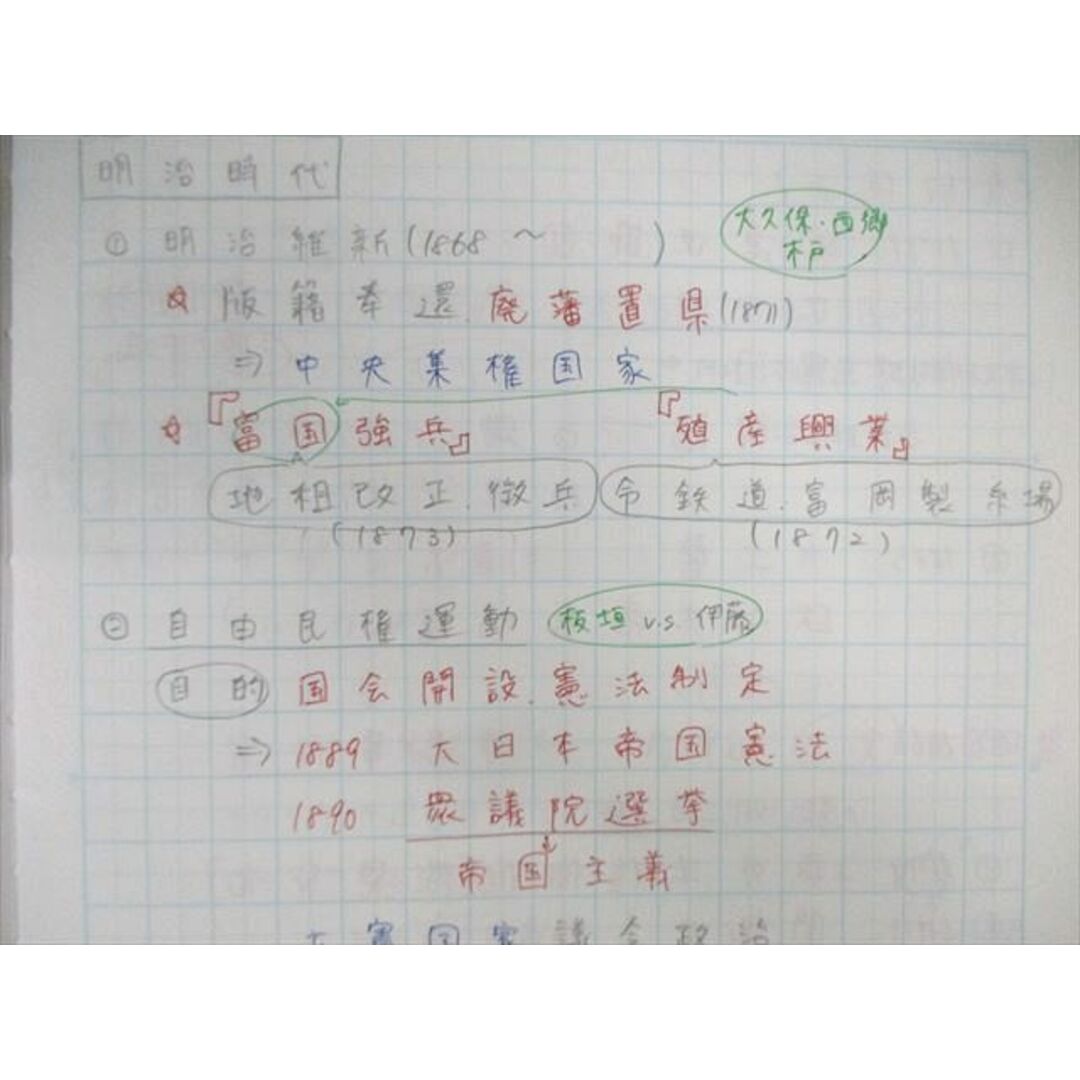 明治時代
① 明治維新(1868〜 )
大久保・西郷
木戸
☆ 版籍奉還、廃藩置県(1871)
⇒ 中央集権国家
☆『富国強兵』 『殖産興業』
地租改正、徴兵 鉄道、富岡製糸場
(1873) (1872)
② 自由民権運動 板垣 v.s 伊藤
目的 国会開設、憲法制定
⇒ 1889 大日本帝国憲法
1890 衆議院選挙
↓
帝国主義
立憲国家 議会政治